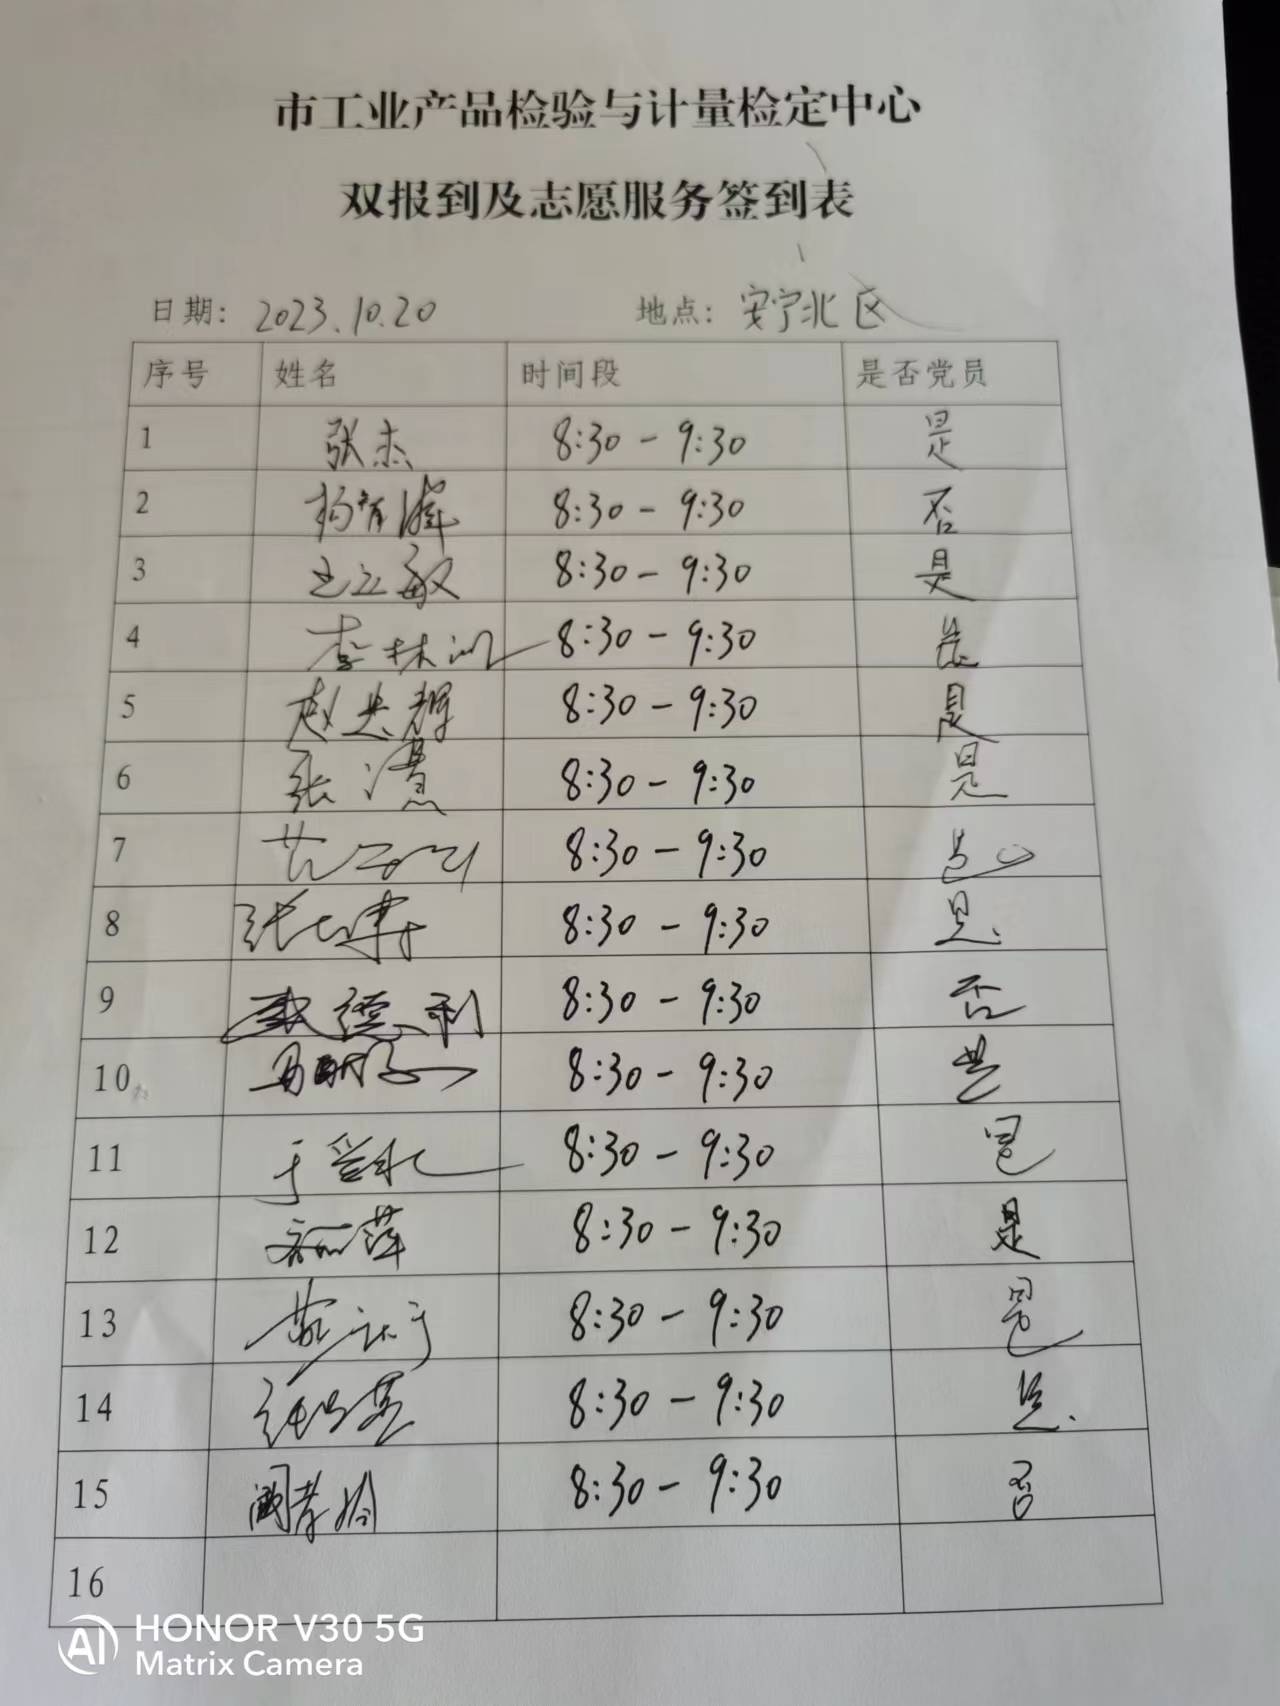 市工业产品检验与计量检定中心
双报到及志愿服务签到表
日期: 2023.10.20 地点: 安宁北区
序号 姓名 时间段 是否党员
1 张杰 8:30-9:30 是
2 8:30-9:30 否
3 王立敏 8:30-9:30 是
4 李林 8:30-9:30 是
5 赵忠辉 8:30-9:30 是
6 张 8:30-9:30 是
7 8:30-9:30 是
8 张 8:30-9:30 是
9 德利 8:30-9:30 否
10 马 8:30-9:30 是
11 于 8:30-9:30 是
12 萍 8:30-9:30 是
13 8:30-9:30 是
14 张 8:30-9:30 是
15 8:30-9:30 否
16
AI HONOR V30 5G
Matrix Camera